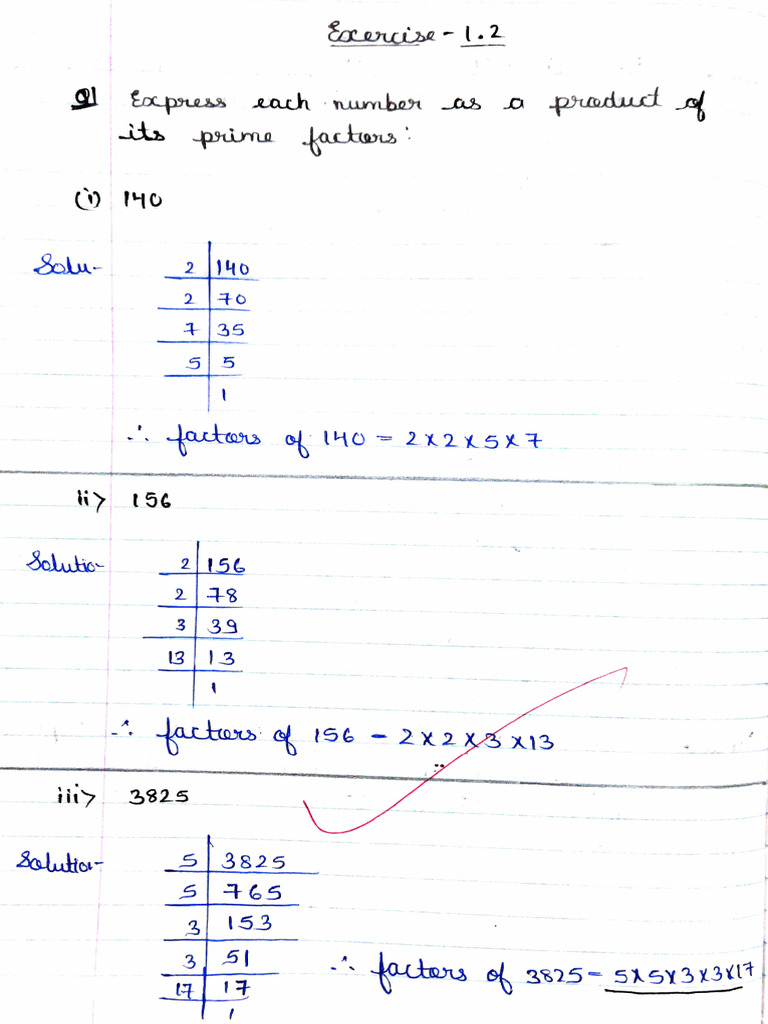 Exercise - 1.2
Q1 Express each number as a product of
its prime factors:
(i) 140
Solu-
2 | 140
2 | 70
7 | 35
5 | 5
1
∴ factors of 140 = 2×2×5×7
ii> 156
Solutio-
2 | 156
2 | 78
3 | 39
13 | 13
1
∴ factors of 156 - 2×2×3×13
iii> 3825
Solution-
5 | 3825
5 | 765
3 | 153
3 | 51
17 | 17
1
∴ factors of 3825 = 5×5×3×3×17